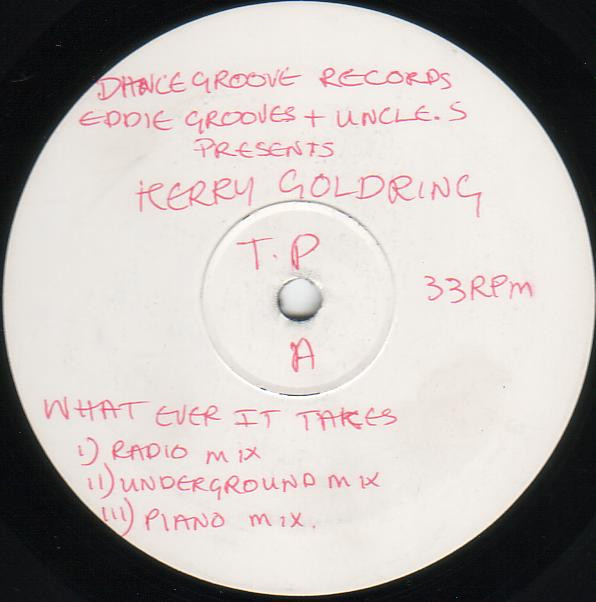 DANCEGROOVE RECORDS
EDDIE GROOVES + UNCLE.S
PRESENTS
KERRY GOLDRING
T.P
33RPM
A
WHAT EVER IT TAKES
i) RADIO MIX
ii) UNDERGROUND MIX
iii) PIANO MIX.